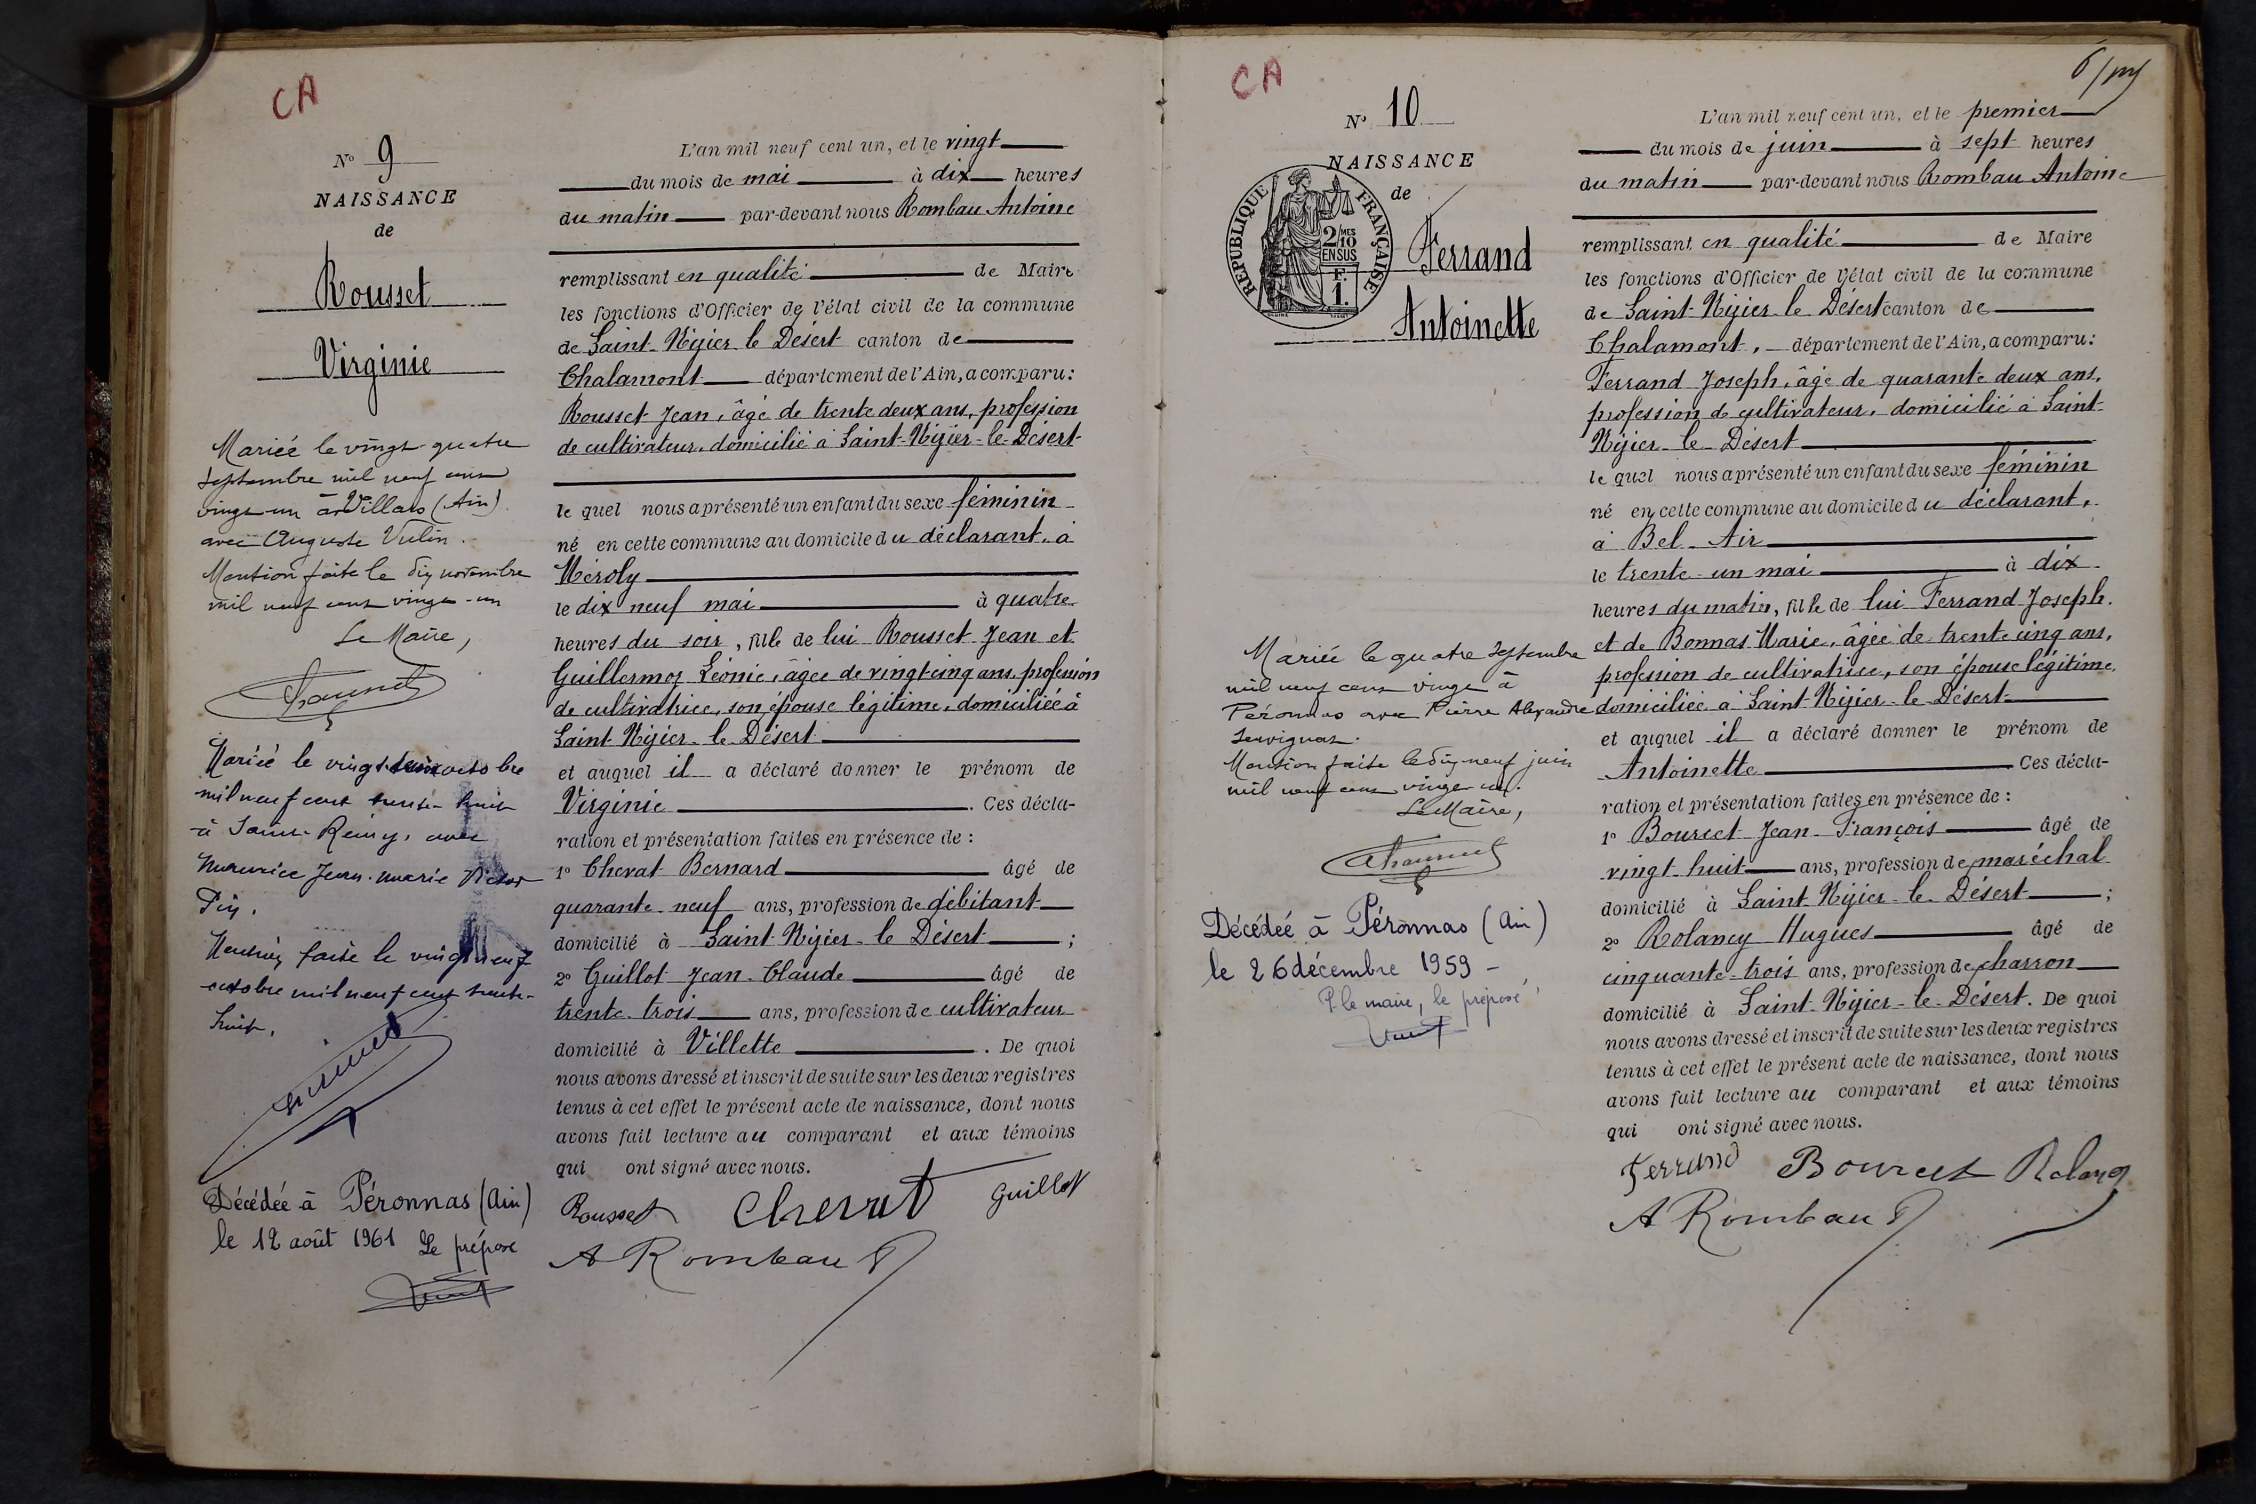 CA
N° 9
NAISSANCE
de
Rousset
Virginie
Mariée le vingt quatre
septembre mil neuf cent
vingt un à Villars (Ain)
avec Auguste Vulin.
Mention faite le dix novembre
mil neuf cent vingt-un
Le Maire,
Mariée le vingt octobre
mil neuf cent trente-huit
à Saint-Rémy, avec
Maurice Jean-Marie Victor
Pin.
Mention faite le vingt neuf
octobre mil neuf cent trente-
huit.
Décédée à Péronnas (Ain)
le 12 août 1961 Le préposé
L'an mil neuf cent un, et le vingt
du mois de mai à dix heures
du matin par-devant nous Rombau Antoine
remplissant en qualité de Maire
les fonctions d'Officier de l'état civil de la commune
de Saint-Nizier-le Désert canton de
Chalamont département de l'Ain, a comparu:
Rousset Jean, âgé de trente deux ans, profession
de cultivateur, domicilié à Saint-Nizier-le-Désert
le quel nous a présenté un enfant du sexe féminin
né en cette commune au domicile du déclarant, à
Méroly
le dix neuf mai à quatre
heures du soir, fille de lui Rousset Jean et
Guillermoz Léonie, âgée de vingt cinq ans, profession
de cultivatrice, son épouse légitime, domiciliée à
Saint-Nizier-le-Désert
et auquel il a déclaré donner le prénom de
Virginie. Ces décla-
ration et présentation faites en présence de :
1° Chevat Bernard âgé de
quarante-neuf ans, profession de débitant
domicilié à Saint-Nizier-le Désert ;
2° Guillot Jean-Claude âgé de
trente-trois ans, profession de cultivateur
domicilié à Villette. De quoi
nous avons dressé et inscrit de suite sur les deux registres
tenus à cet effet le présent acte de naissance, dont nous
avons fait lecture au comparant et aux témoins
qui ont signé avec nous.
Rousset Chevat Guillot
A Rombau
CA
6
N° 10
NAISSANCE
de
RÉPUBLIQUE FRANÇAISE
2/10 MES
EN SUS
F.
1.
Ferrand
Antoinette
Mariée le quatre septembre
mil neuf cent vingt à
Péronnas avec Pierre Alexandre
Mention faite le dix neuf juin
mil neuf cent vingt un.
Le Maire,
Décédée à Péronnas (Ain)
le 26 décembre 1959 -
P le maire, le préposé
L'an mil neuf cent un, et le premier
du mois de juin à sept heures
du matin par-devant nous Rombau Antoine
remplissant en qualité de Maire
les fonctions d'Officier de l'état civil de la commune
de Saint-Nizier-le Désert canton de
Chalamont, département de l'Ain, a comparu:
Ferrand Joseph, âgé de quarante deux ans,
profession de cultivateur, domicilié à Saint-
Nizier-le-Désert
le quel nous a présenté un enfant du sexe féminin
né en cette commune au domicile du déclarant,
à Bel-Air
le trente-un mai à dix
heures du matin, fille de lui Ferrand Joseph
et de Bonnas Marie, âgée de trente cinq ans,
profession de cultivatrice, son épouse légitime,
domiciliée à Saint-Nizier-le-Désert
et auquel il a déclaré donner le prénom de
Antoinette Ces décla-
ration et présentation faites en présence de :
1° Bourcet Jean-François âgé de
vingt-huit ans, profession de maréchal
domicilié à Saint-Nizier-le-Désert ;
2° Rolancy Hugues âgé de
cinquante-trois ans, profession de charron
domicilié à Saint-Nizier-le-Désert. De quoi
nous avons dressé et inscrit de suite sur les deux registres
tenus à cet effet le présent acte de naissance, dont nous
avons fait lecture au comparant et aux témoins
qui ont signé avec nous.
Ferrand Bourcet Rolancy
A Rombau